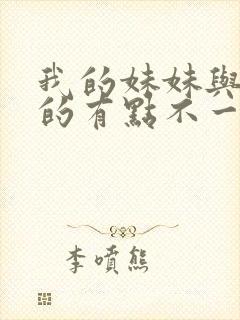 我的妹妹與
的有點不一
李噴熊